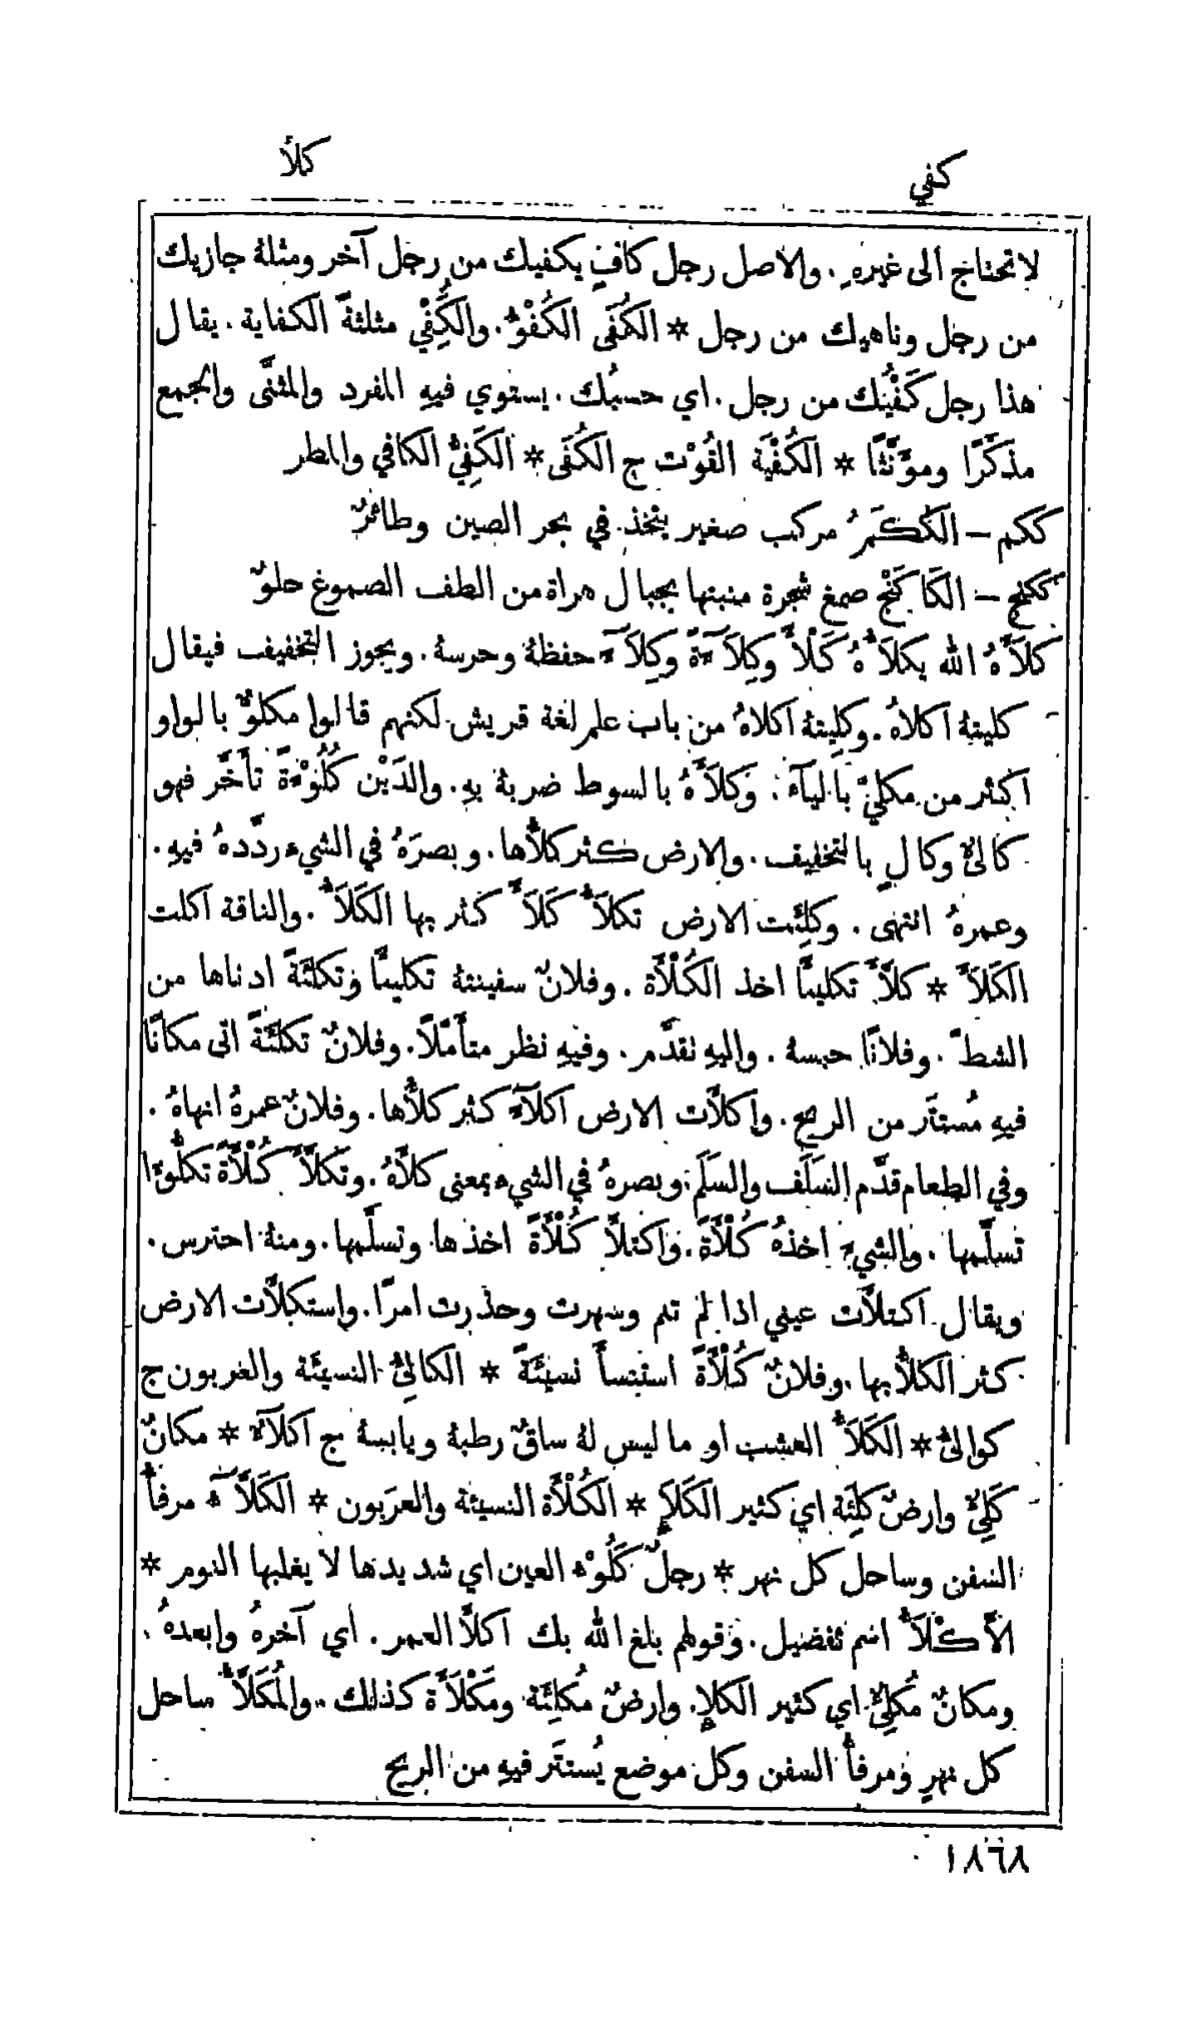 كفي
كلأ
لا تحتاج الى غيرهِ. والاصل رجل كافٍ يكفيك من رجل آخر ومثلهُ جازيك
من رجل وناهيك من رجل * الكُفَى الكُفْوُ. والكُِفْي مثلثةً الكفاية. يقال
هذا رجل كَفْيُك من رجل. اي حسبُك. يستوي فيهِ المفرد والمثنَّى والجمع
مذكَّرًا ومؤنَّثًا * الكُفْيَة القُوْت ج الكُفَى * الكَفِيُّ الكافي والمطر
ككم – الكُكَمُ مركب صغير يتخذ في بحر الصين وطائرٌ
ككنج – الكَاكَنْج صمغ شجرة منبتها بجبال هراة من الطف الصموغ حلوٌ
كلأَهُ الله يكلأُهُ كَلْأً وكِلَاءَةً وكِلَاءً حفظهُ وحرسهُ. ويجوز التخفيف فيقال
كليتهُ اكلاهُ. وكِليتهُ اكلاهُ من باب علم لغة قريش لكنهم قالوا مكلوٌّ بالواو
اكثر من مكليّ بالياء. وكلأَهُ بالسوط ضربهُ بهِ. والدَيْن كُلُوْءَةً تأَخَّر فهو
كالئٌ وكالٍ بالتخفيف. والارض كثر كلأُها. وبصرَهُ في الشيء ردَّدهُ فيهِ.
وعمرهُ انتهى. وكلِئَت الارض تكلأُ كَلَأً كثر بها الكَلَأُ. والناقة اكلت
الكَلَأَ * كلَّأَ تكليئًا اخذ الكُلْأَة. وفلانٌ سفينتهُ تكليئًا وتكلئَةً ادناها من
الشطّ. وفلانًا حبسهُ. واليهِ تقدَّم. وفيهِ نظر متأَمّلًا. وفلانٌ تكلئَةً اتى مكانًا
فيهِ مُستتَر من الريح. واكلأَت الارض اكلآءً كثر كلأُها. وفلانٌ عمرهُ انهاهُ.
وفي الطعام قدَّم السَلَف والسَلَم. وبصرهُ في الشيء بمعنى كلأَهُ. وتكلَّأَ كُلْأَةً تكلُّؤًا
تسلَّمها. والشيءَ اخذهُ كُلْأَةً. واكتلأَ كُلْأَةً اخذها وتسلَّمها. ومنهُ احترس.
ويقال اكتلأَت عيني اذا لم تنم وسهرت وحذرت امرًا. واستكلأَت الارض
كثر الكلأُ بها. وفلانٌ كُلْأَةً استنسأَ نسيئَةً * الكالئُ النسيئَة والعربون ج
كوالئُ * الكَلَأُ العشب او ما ليس لهُ ساقٌ رطبهُ ويابسهُ ج اكلآءٌ * مكانٌ
كَلِئٌ وارضٌ كلِئَة اي كثير الكَلَإِ * الكُلْأَة النسيئة والعرَبون * الكَلَّاءُ مرفأُ
السفن وساحل كل نهر * رجلٌ كَلُوْءُ العين اي شديدها لا يغلبها النوم *
الأَكْلَأُ اسم تفضيل. وقولهم بلغ الله بك اكلأَ العمر. أي آخرهُ وابعدهُ.
ومكانٌ مُكلِئٌ اي كثير الكلإِ. وارضٌ مُكلِئَة ومَكْلَأَة كذلك. والمُكَلَّأُ ساحل
كل نهرٍ ومرفأُ السفن وكل موضع يُستتَر فيهِ من الريح
١٨٦٨